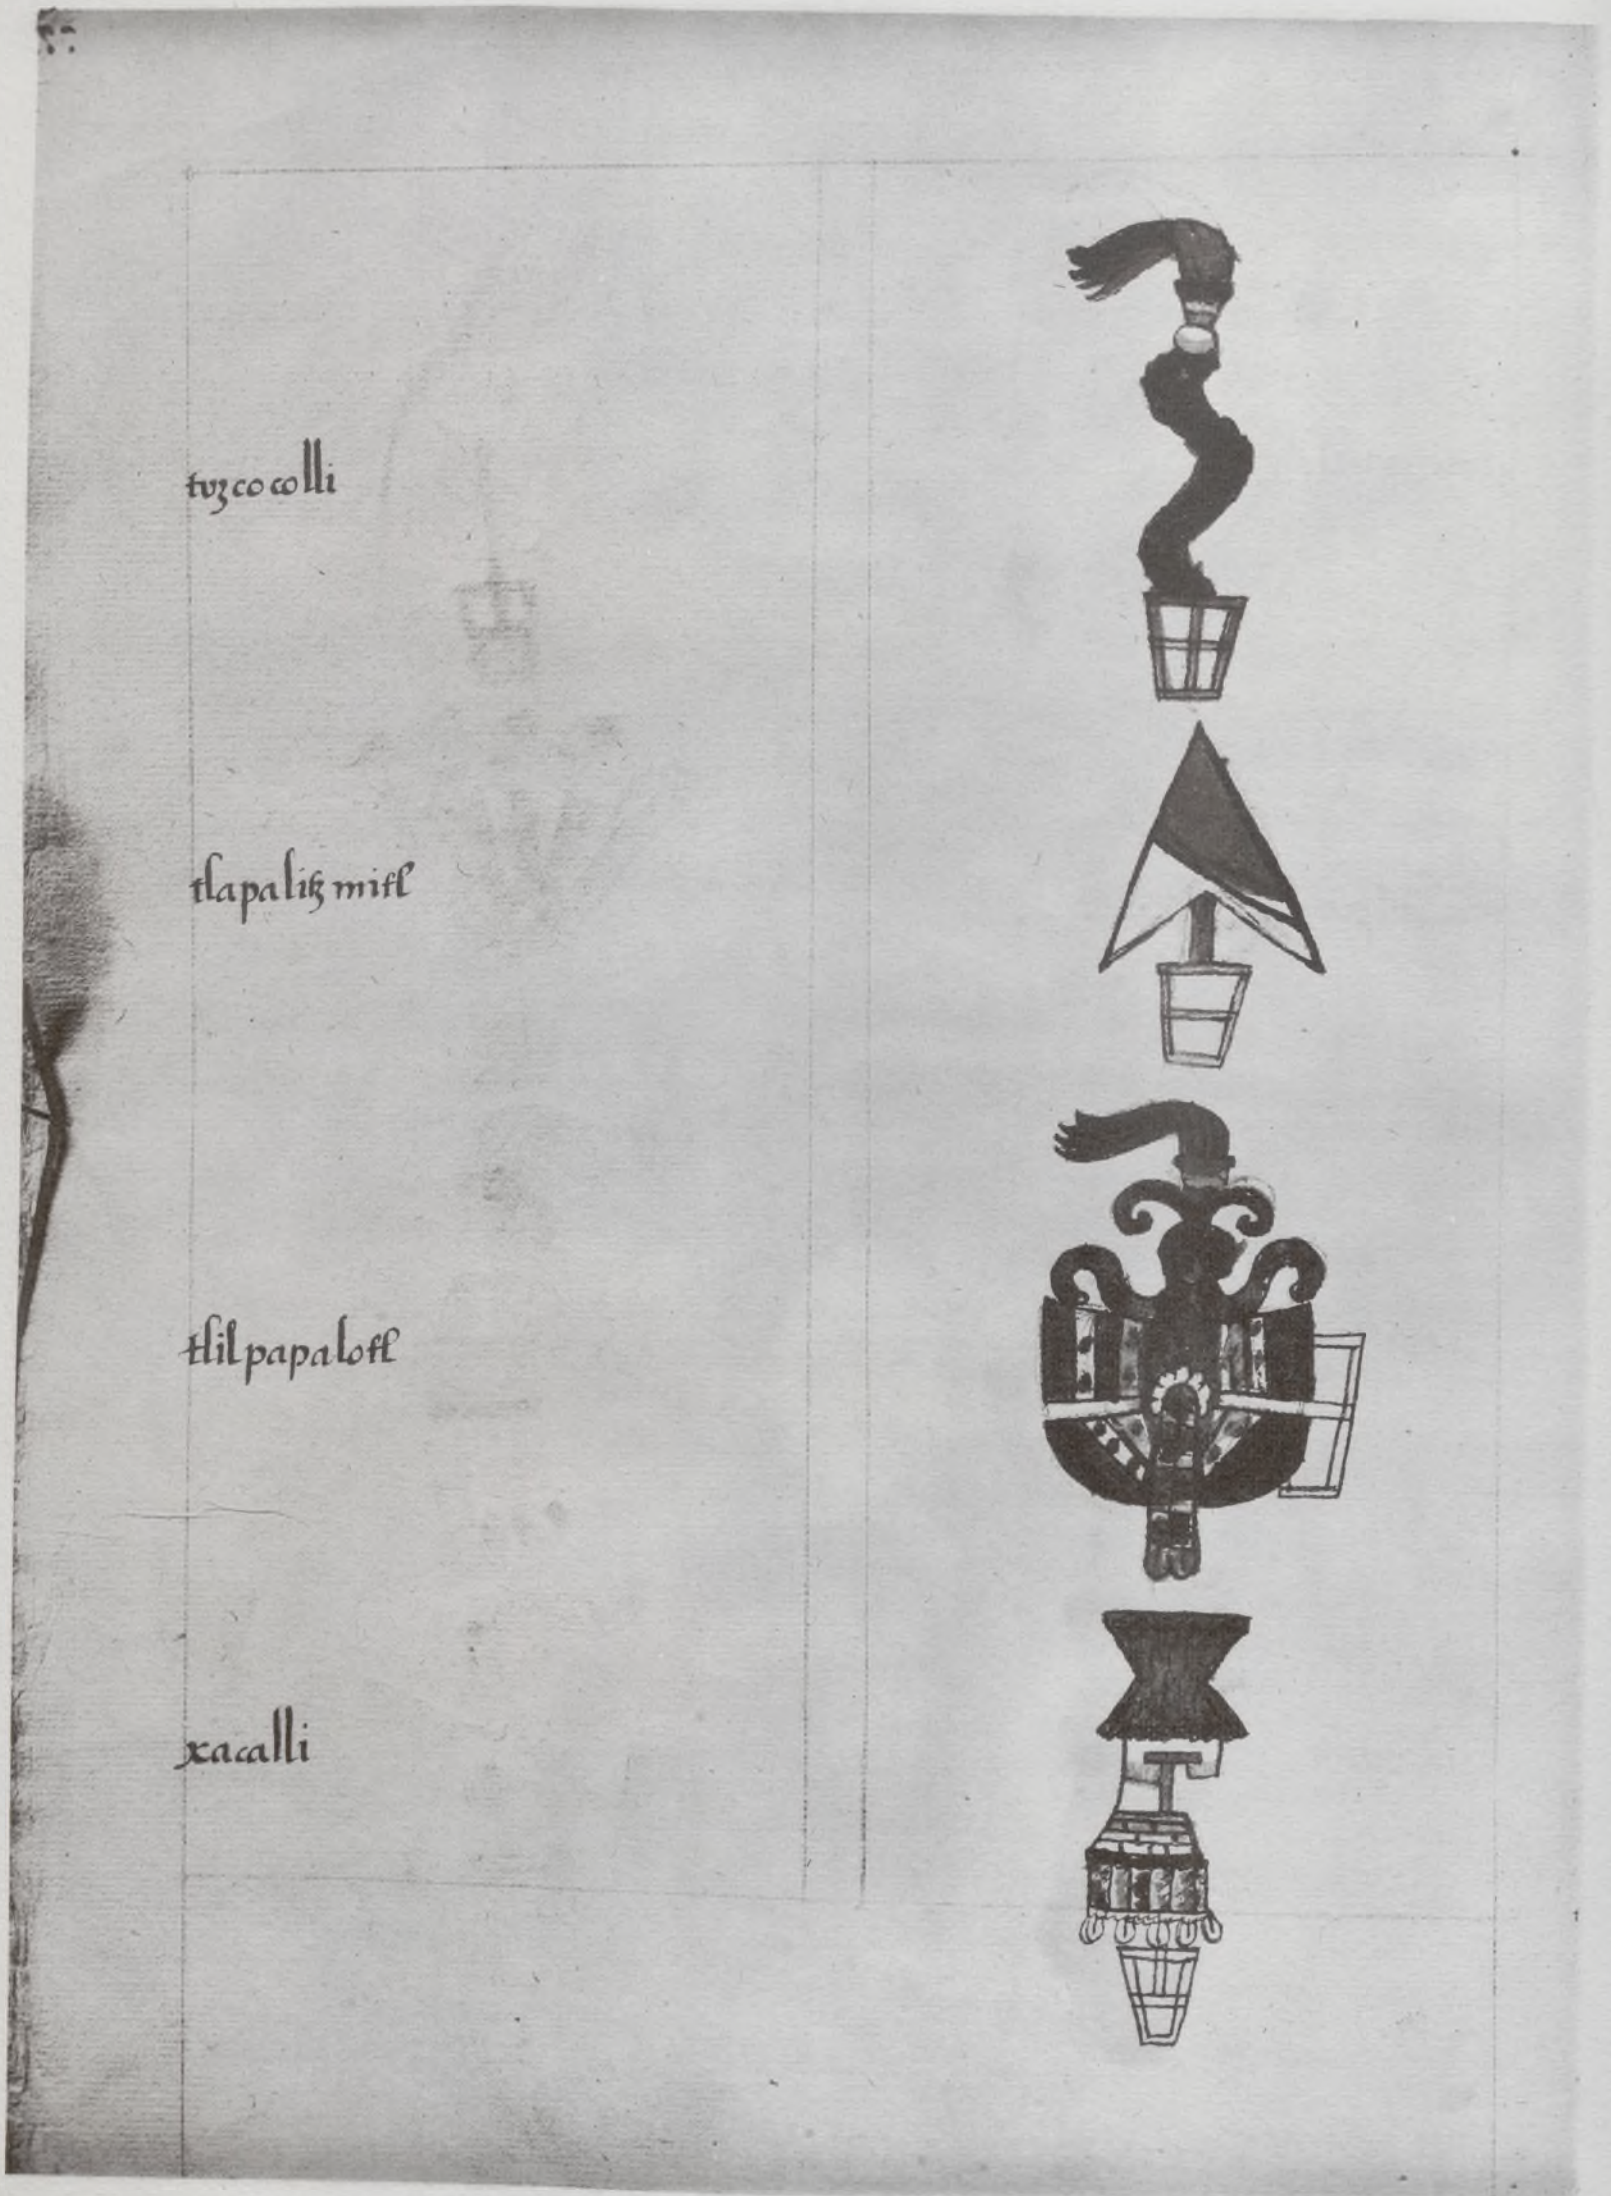 tozcocolli
tlapalitzmitl
tlilpapalotl
xacalli